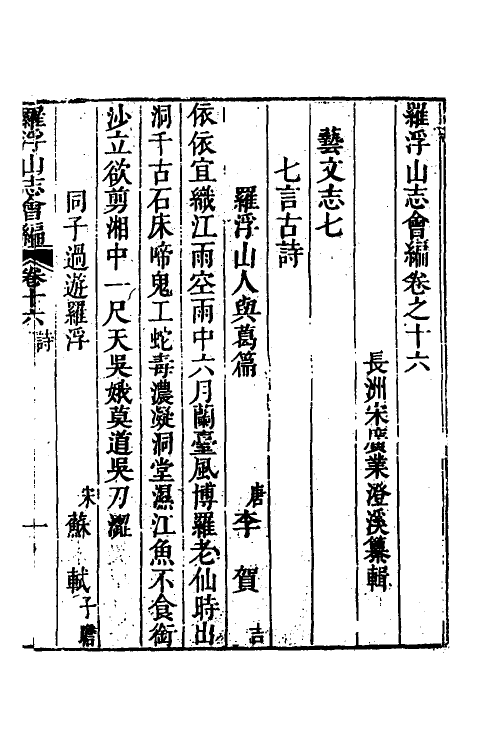 羅浮山志會編卷之十六
長洲宋廣業澄溪纂輯
藝文志七
七言古詩
羅浮山人與葛篇
唐李賀吉
依依宜織江雨空雨中六月蘭臺風博羅老仙時出
洞千古石床啼鬼工蛇毒濃凝洞堂濕江魚不食銜
沙立欲剪湘中一尺天吳娥莫道吳刀澀
同子過遊羅浮
宋蘇軾子瞻
羅浮山志會編
卷十六
詩
一